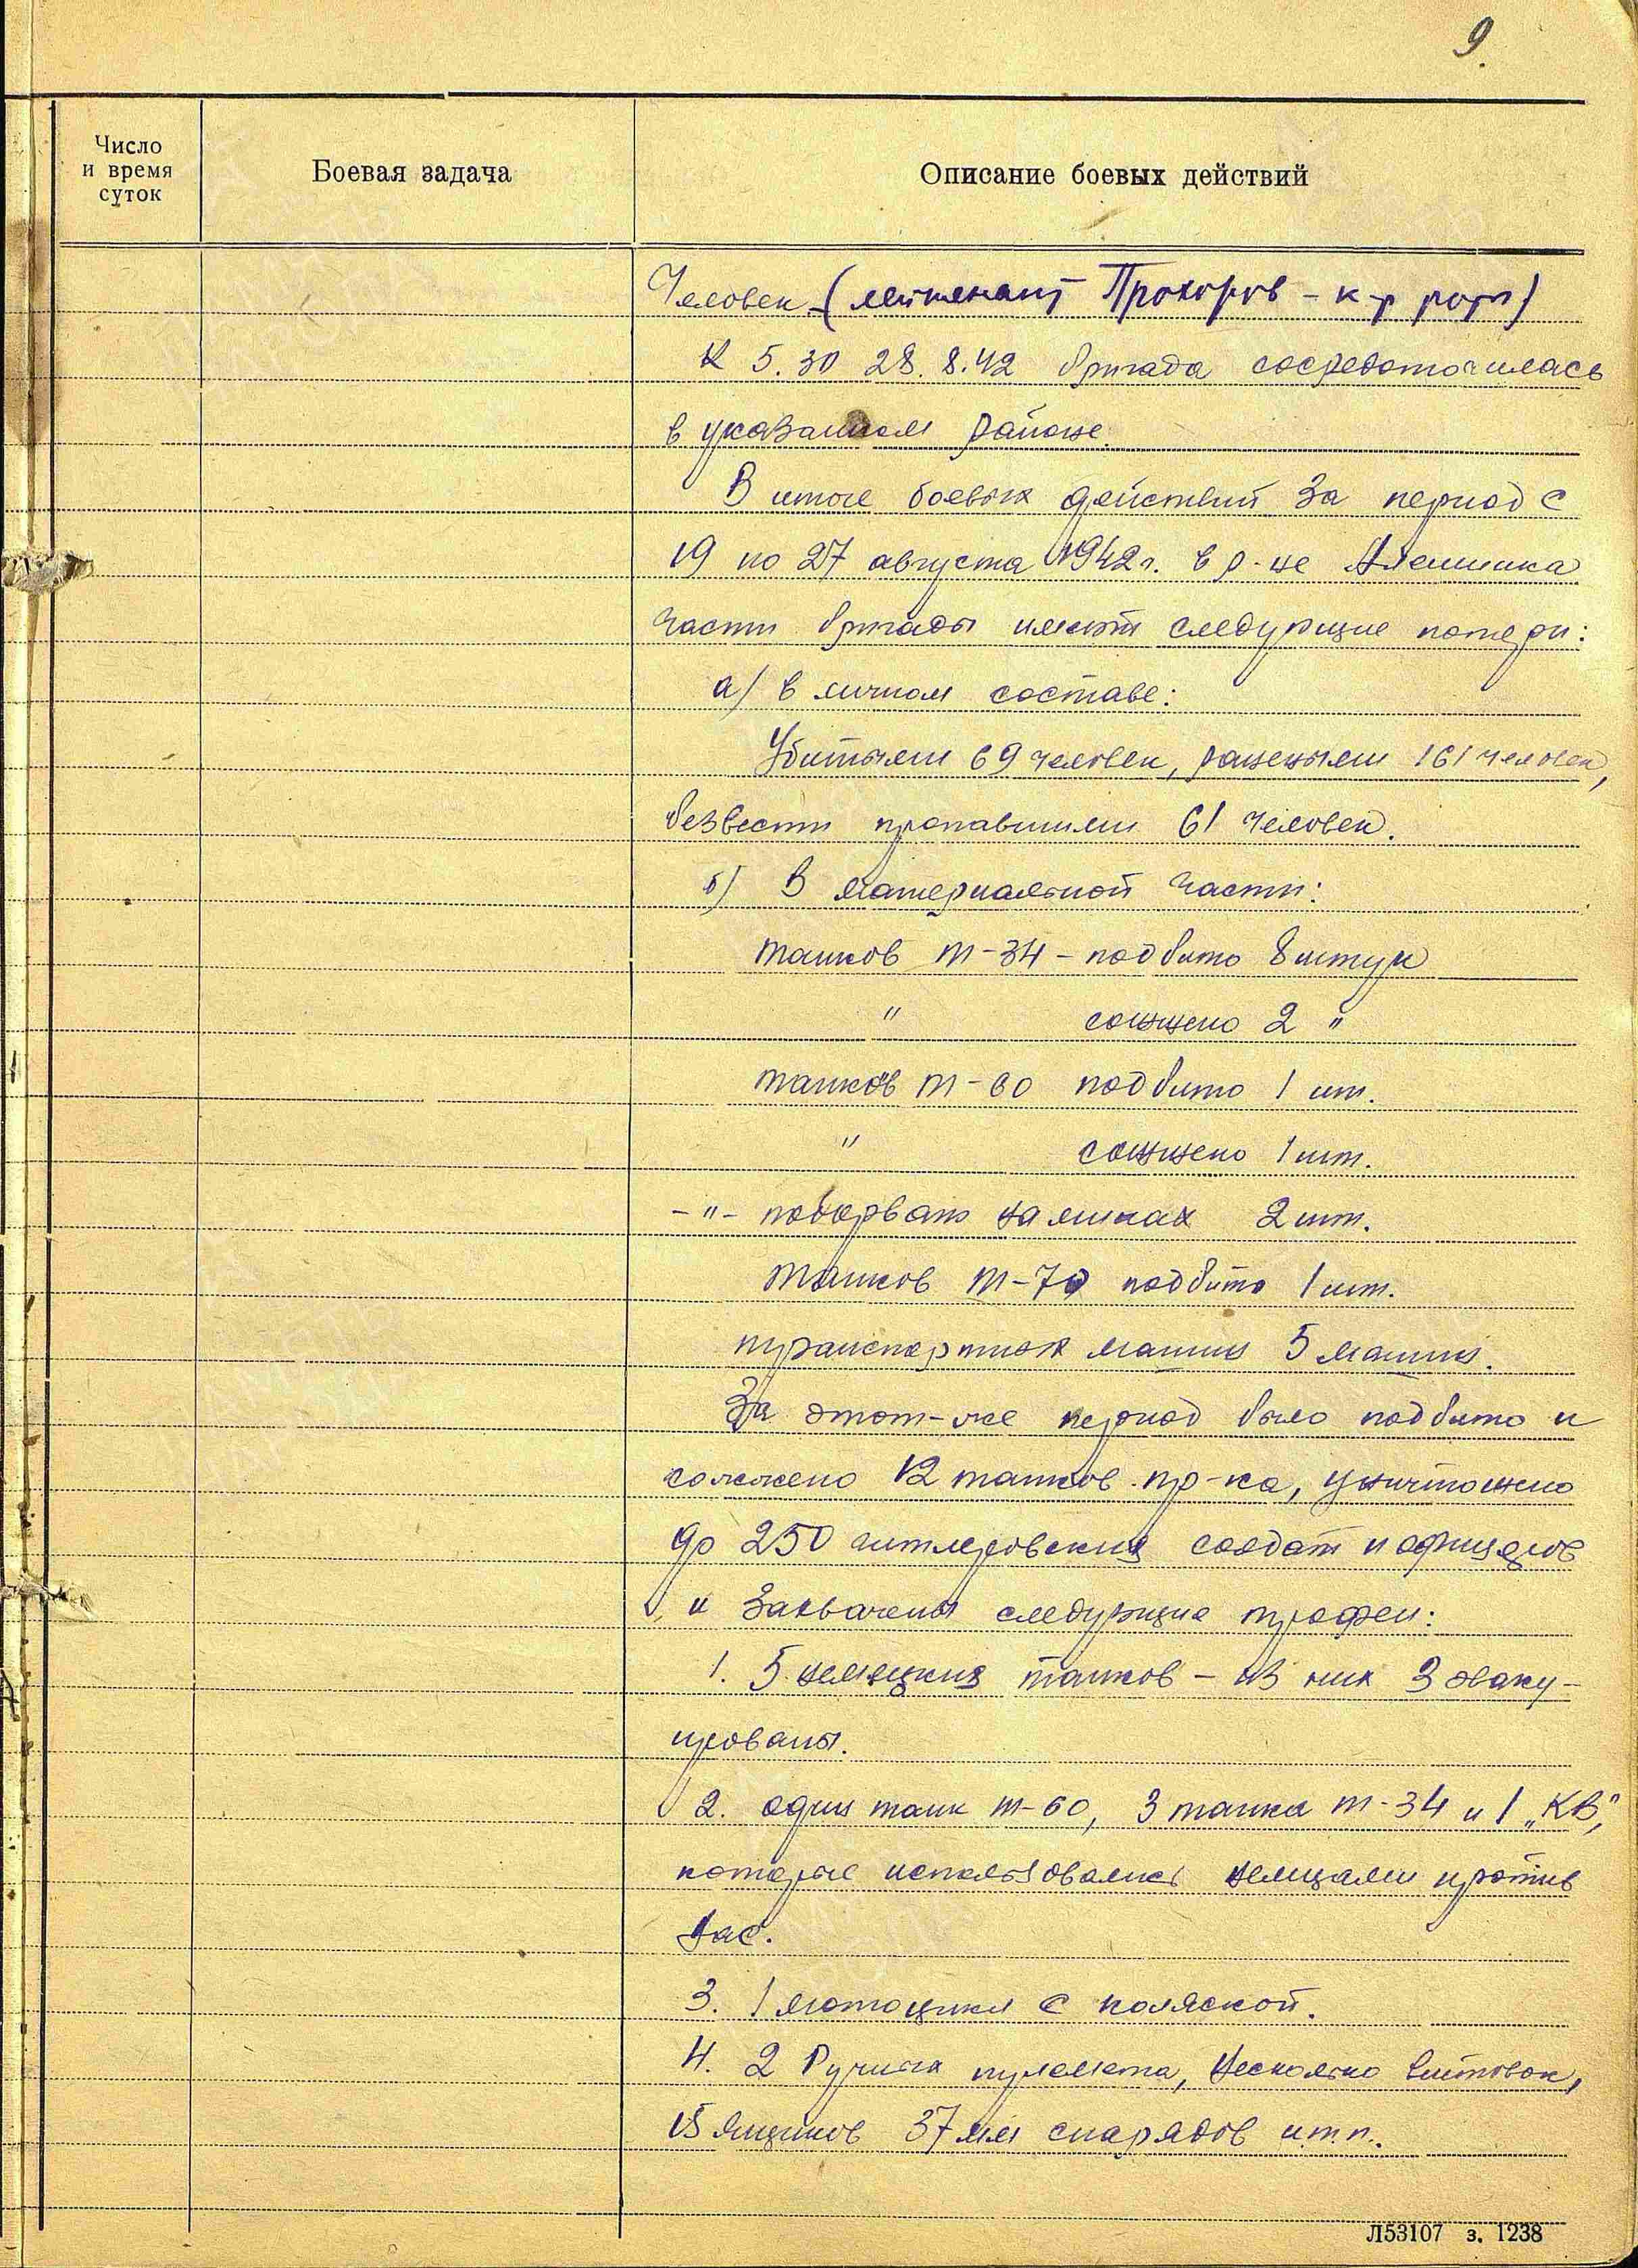 9.
Число
и время
суток
Боевая задача
Описание боевых действий
Человек (лейтенант Прохоров - к-р роты)
К 5.30 28.8.42 бригада сосредоточилась
в указанном районе.
В итоге боевых действий за период с
19 по 27 августа 1942 г. в р-не Алешинка
части бригады имеют следующие потери:
а) в личном составе:
Убитыми 69 человек, ранеными 161 человек,
безвести пропавшими 61 человек.
б) В материальной части:
танков Т-34 - подбито 8 штук
" сожжено 2 "
танков Т-60 подбито 1 шт.
" сожжено 1 шт.
-"- подорваны на минах 2 шт.
Танков Т-70 подбито 1 шт.
транспортных машин 5 машин.
За этот-же период было подбито и
сожжено 12 танков пр-ка, уничтожено
до 250 гитлеровских солдат и офицеров
и захвачены следующие трофеи:
1. 5 немецких танков - из них 3 эваку-
ированы.
2. один танк Т-60, 3 танка Т-34 и 1 „КВ",
которые использовались немцами против
нас.
3. 1 мотоцикл с коляской.
4. 2 Ручных пулемета, несколько винтовок,
15 ящиков 37 мм снарядов и т.п.
Л53107 з. 1238